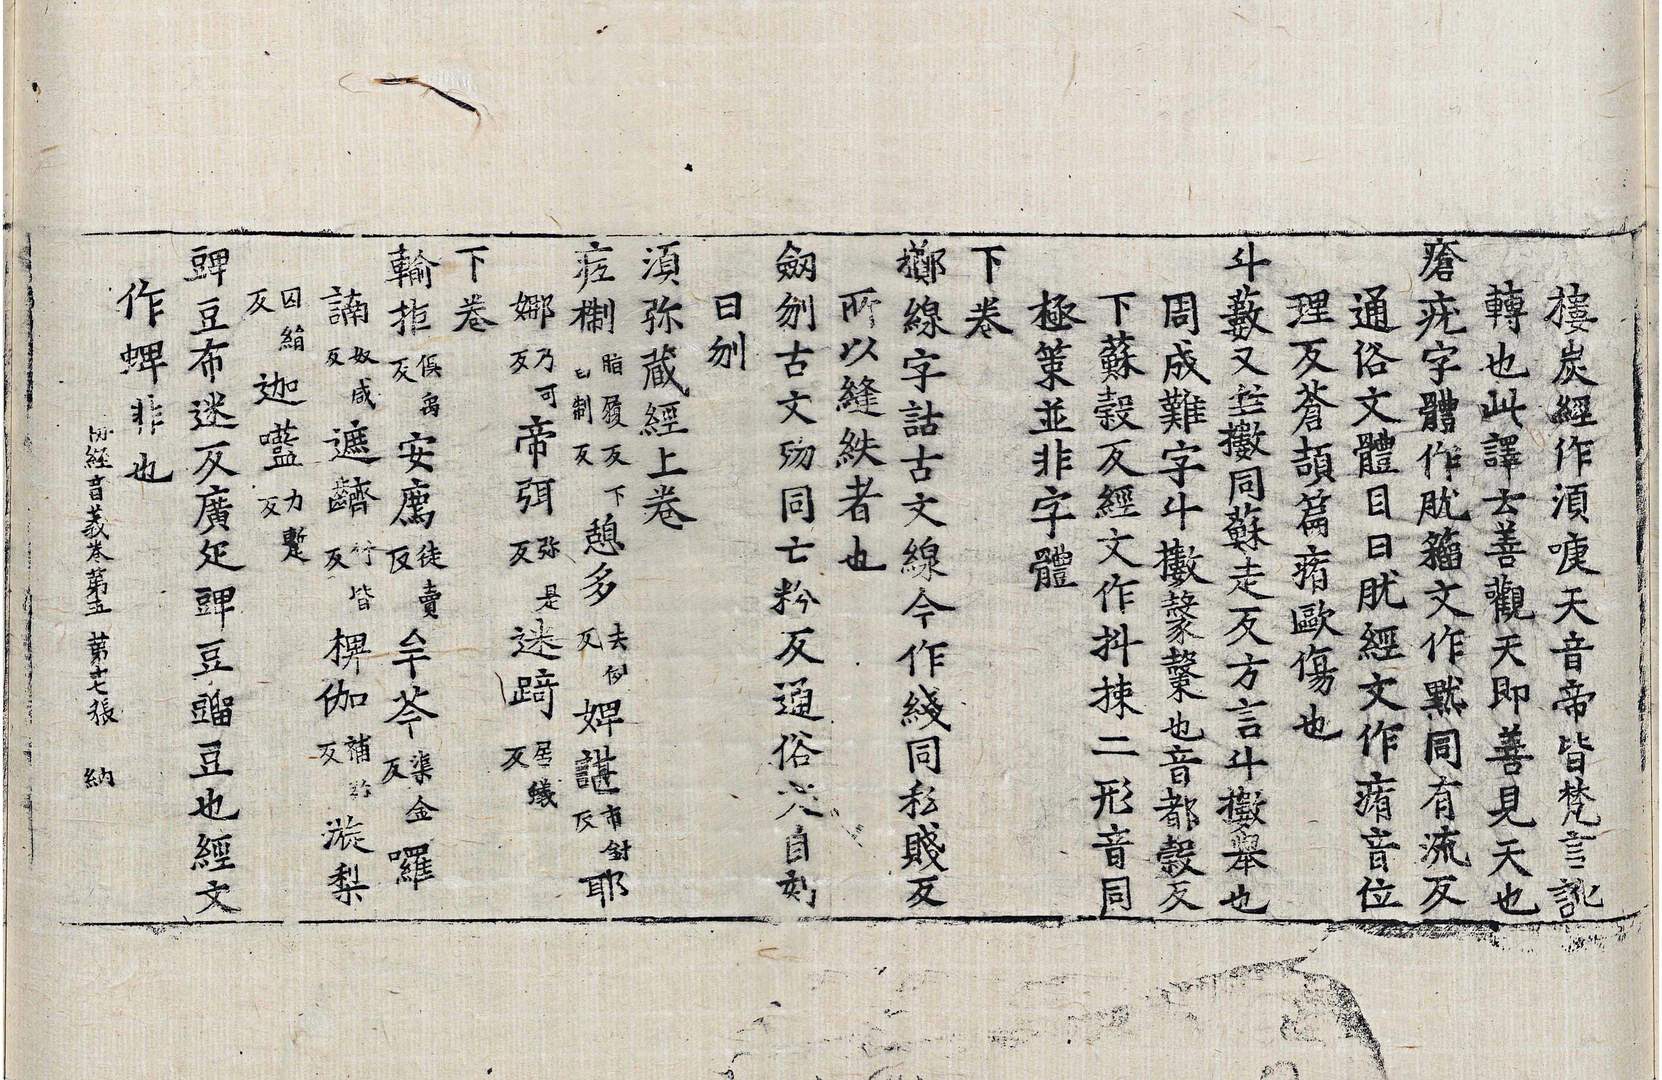 樓炭經作湏㖶天音帝皆梵言訛
轉也此譯云善觀天即善見天也
瘡疣字體作肬籒文作黙同有流反
通俗文體目曰肬經文作疻音位
理反蒼頡篇痏歐傷也
斗藪又作擻同蘇走反方言斗擻舉也
周成難字斗擻䝂䵻也音都縠反
下蘇縠反經文作抖揀二形音同
極策並非字體
下卷
線字詁古文線今作綫同私賤反
所以縫紩者也
劒刎古文歾同亡粉反通俗文自刻
曰刎
湏弥蔵經上卷
痃𣚃脂履反下㔾制反憩多去例反婢諶市針反耶
娜乃可反帝弭弥是反迷踦居蟻反
下卷
輸拒俱禹反安廌徒賣反牟芩渠金反囉
諵奴咸反遮䶩竹皆反椑伽補反漩梨
囚絹反迦㘕力蹔反
豍豆布迷反廣疋豍豆䝁豆也經文
作蜱非也
经音義卷第五 第十七張 納